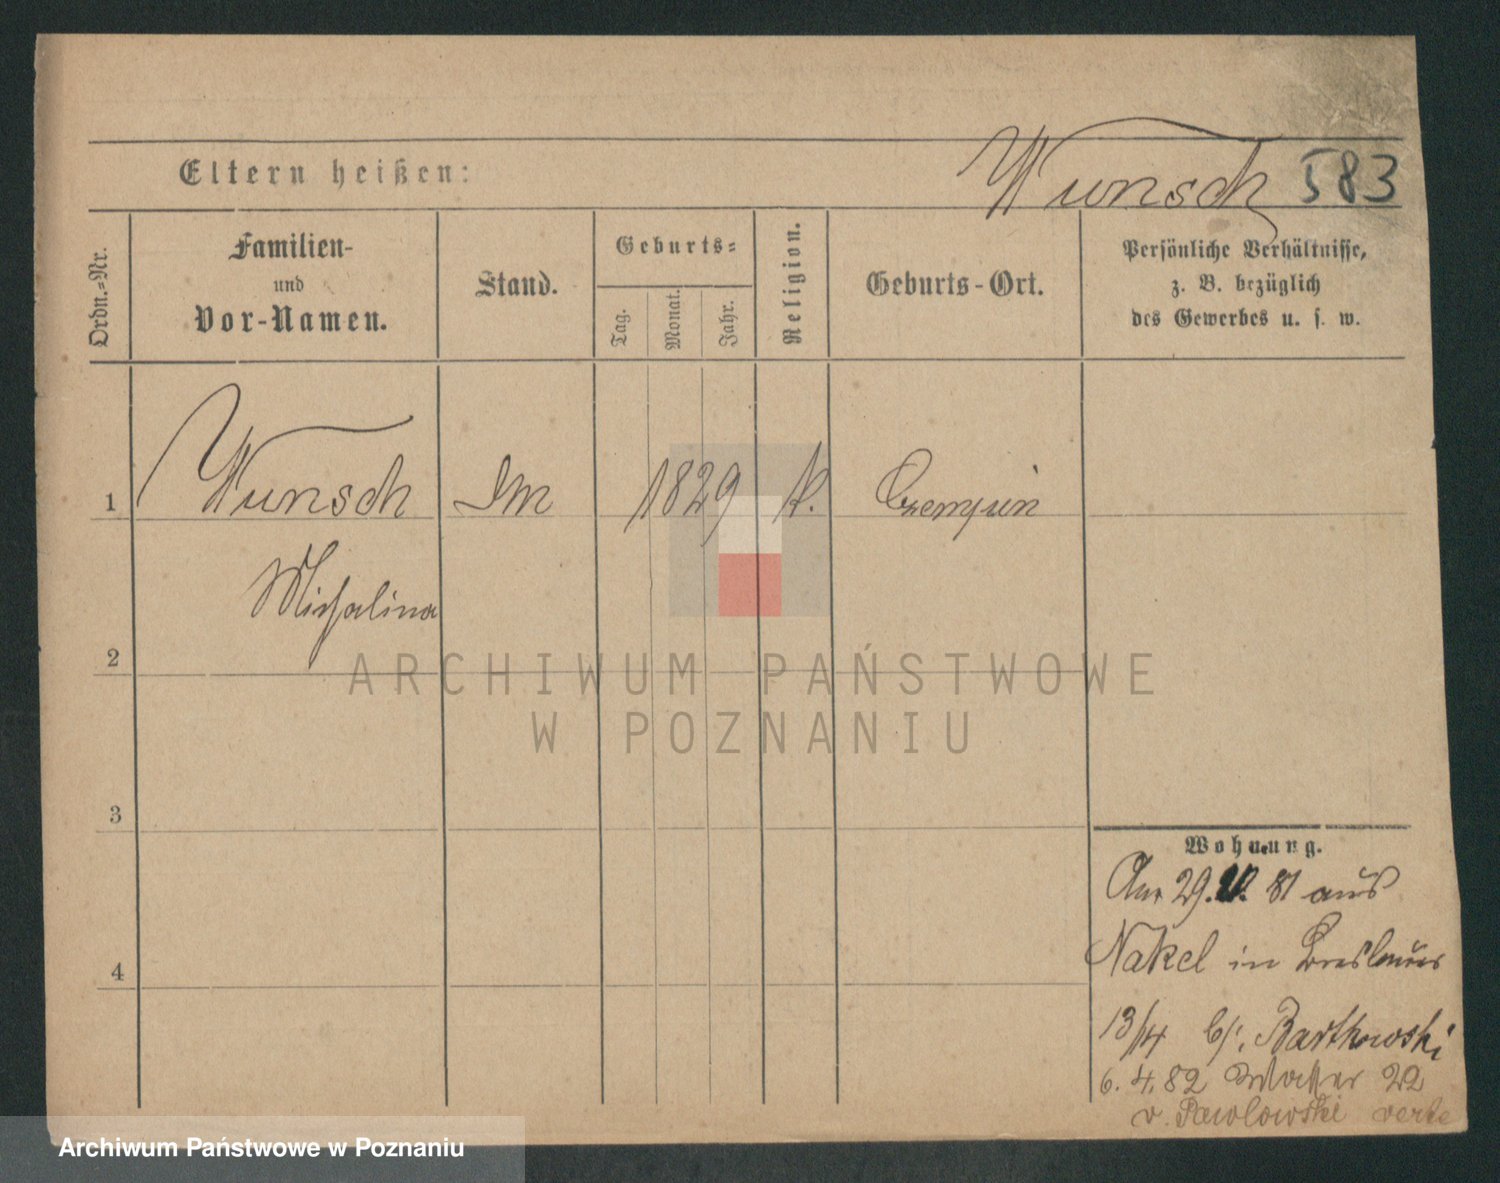 Eltern heißen: Wunsch 583
Ordn.-Nr.
Familien-
und
Vor-Namen.
Stand.
Geburts-
Tag.
Monat.
Jahr.
Religion.
Geburts-Ort.
Persönliche Verhältnisse,
z. B. bezüglich
des Gewerbes u. s. w.
1 Wunsch 1829 k. Czempin
Michalina
2
3
4
Wohnung.
Am 29. 81 aus
Nakel in Breslauer
13/14 b/. Bartkowski
6. 4. 82 Wasser 22
v. Pawlowski verte
ARCHIWUM PAŃSTWOWE
W POZNANIU
Archiwum Państwowe w Poznaniu